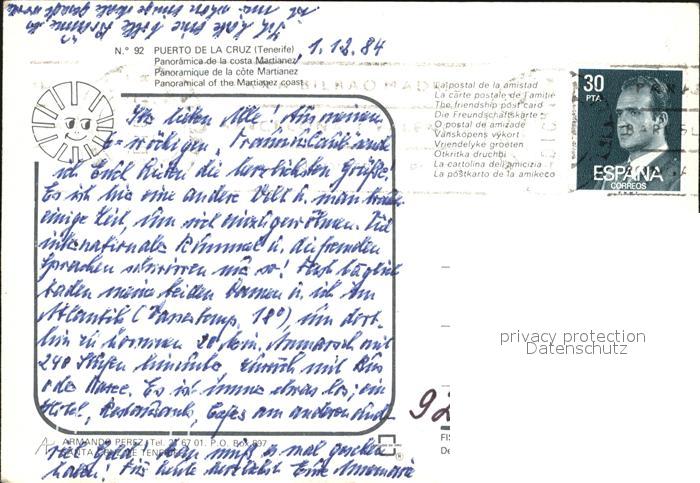 N.° 92 PUERTO DE LA CRUZ (Tenerife)
Panorâmica de la costa Martianez
Panoramique de la côte Martianez
Panoramical of the Martianez coast
1.12.84
La postal de la amistad
La carte postale de l'amitié
The friendship post card
Die Freundschaftskarte
O postal de amizade
Vänskopens vykort
Vriendelyke groeten
Otkritka druchbi
La cartolina dell'amicizia
La postkarto de la amikeco
30
PTA
ESPAÑA
CORREOS
Ihr lieben Alle! Aus meinem
6-wöchigen Traumurlaub sende
ich Euch Lieben die herzlichsten Grüße!
Es ist hie eine andere Welt u. man braucht
einige Zeit, um sich einzugewöhnen. Viel
internationaler Rummel u. die fremden
Sprachen schwirren nur so! Fast täglich
baden meine beiden Damen u. ich im
Atlantik (Wassertemp. 18°), um dort-
hin zu kommen 20 Min. Anmarsch mit
240 Stufen hinunter, zurück mit Bus
oder Taxe. Es ist immer etwas los, ein
Hotel, Restaurants, Cafés am anderen und
viel Geld! Man muß es mal gesehen
haben! Für heute herzlichst Eure Annemarie
92
ARMANDO PEREZ (Tel. 21 67 01. P. O. Box 897
SANTA CRUZ DE TENERIFE
FIS
De
privacy protection
Datenschutz